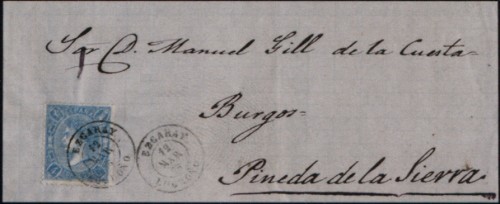 Sor D. Manuel Gill de la Cuesta=
Burgos=
Pineda de la Sierra
EZCARAY
12
MAR
LOGROÑO
EZCARAY
12
MAR
LOGROÑO